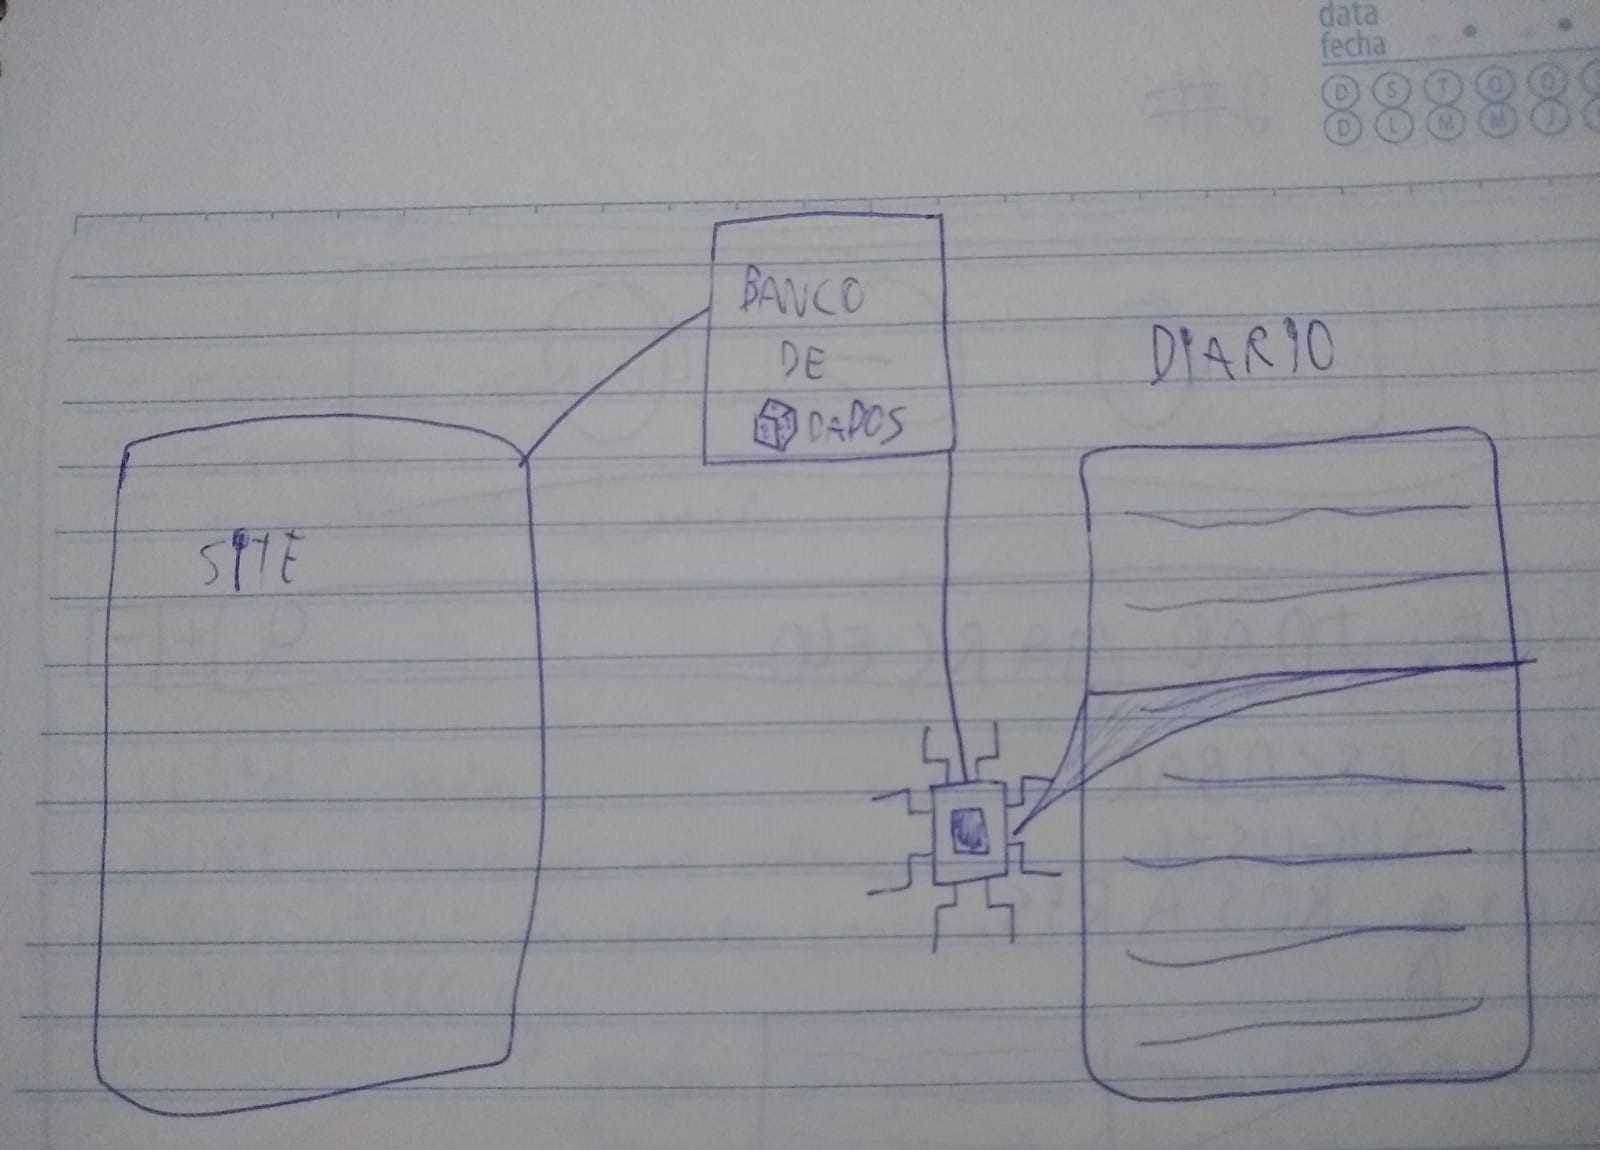 data
fecha
D S T Q Q
D L M M J
BANCO
DE
DADOS
DIARIO
SITE